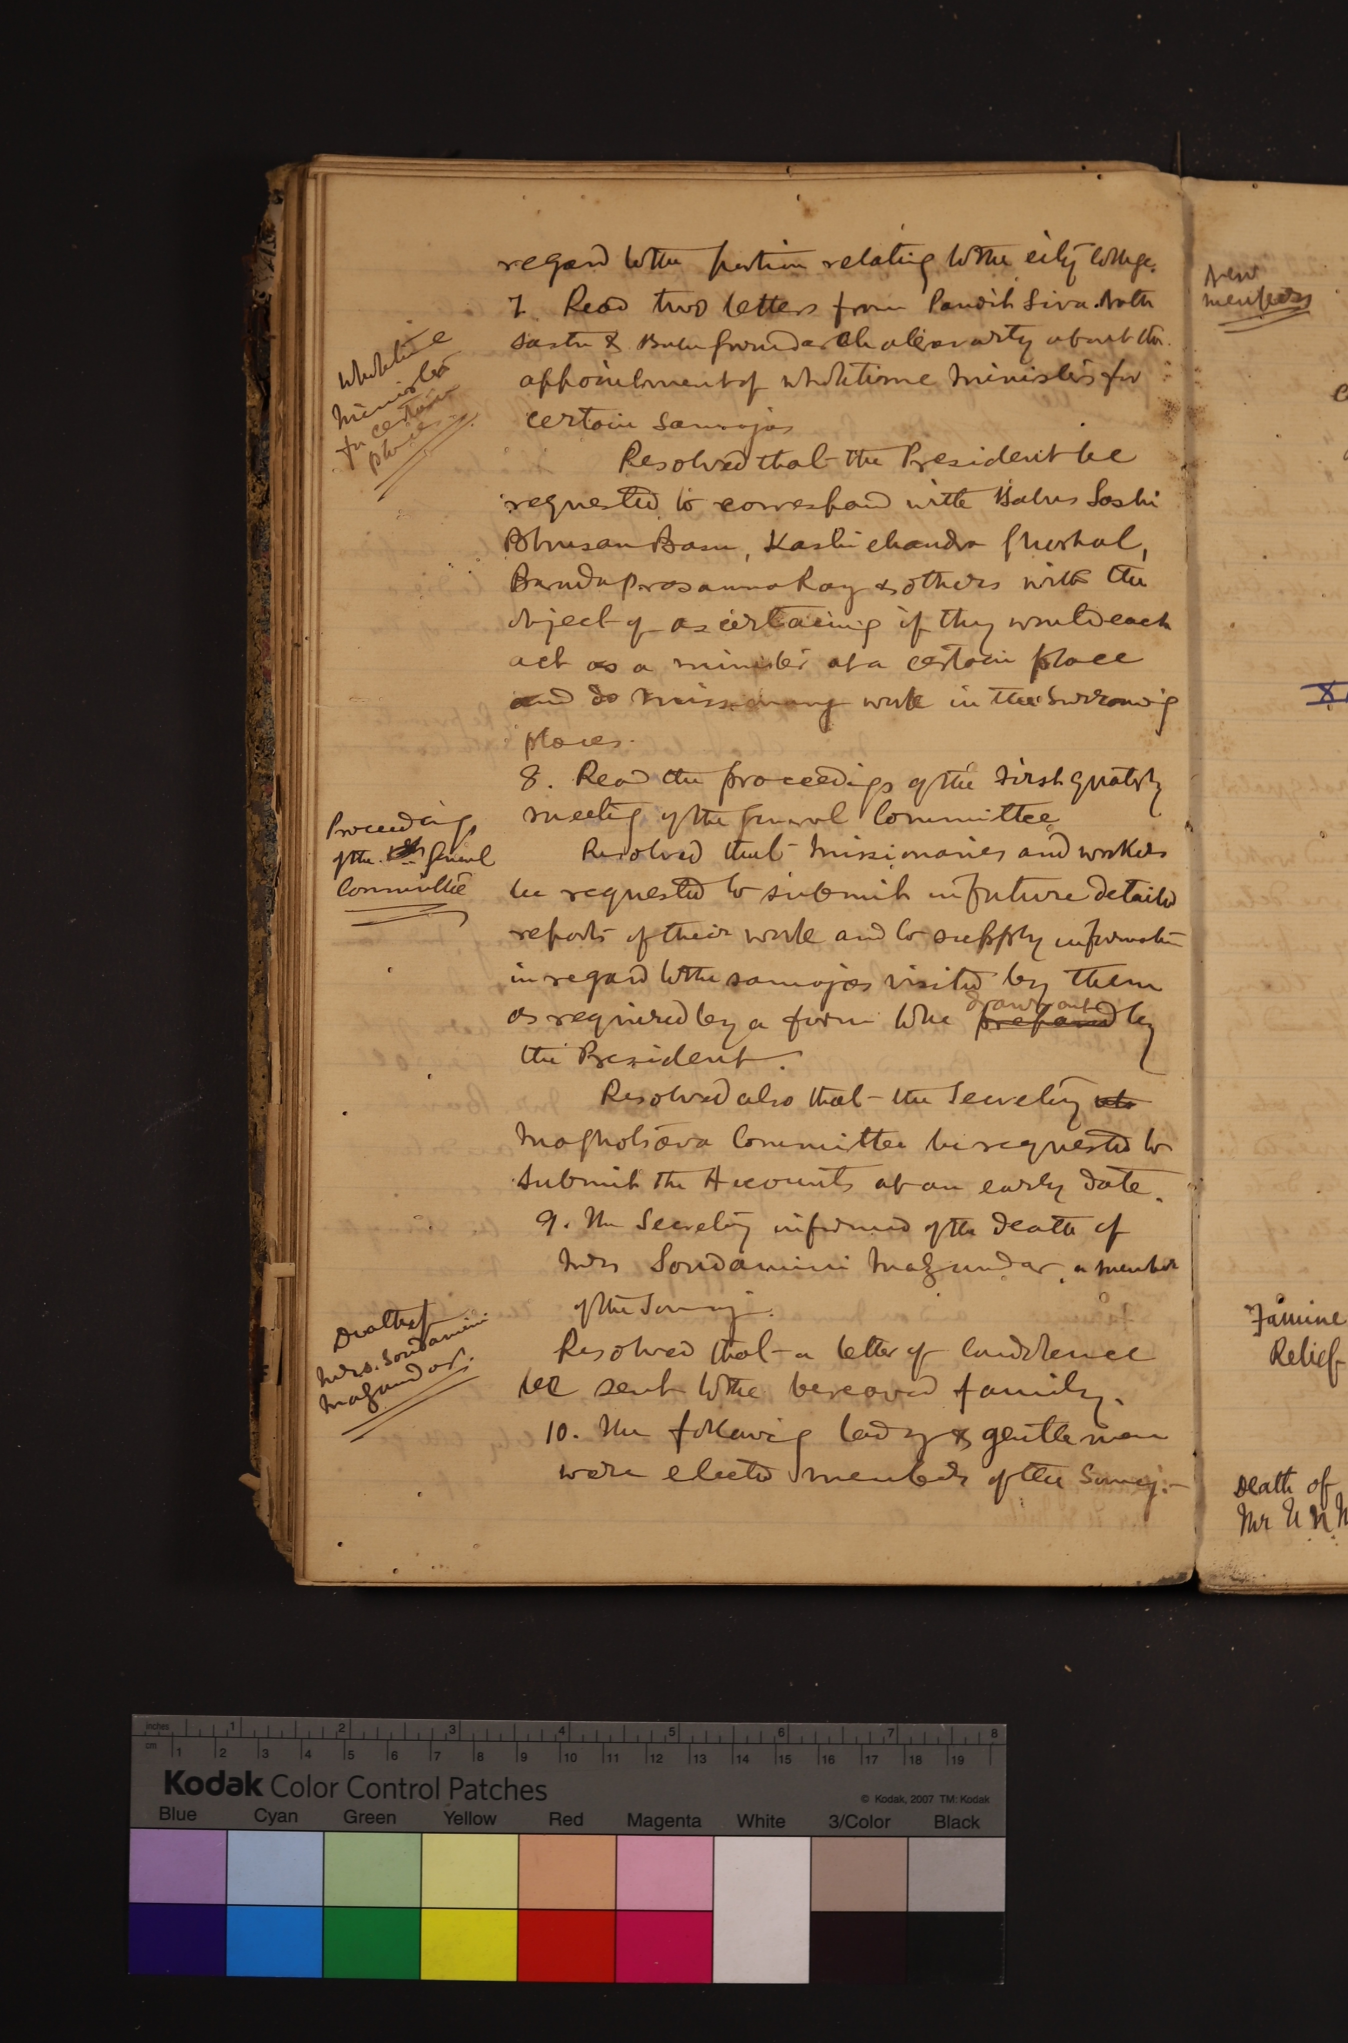 regard to the portion relating to the city College.
7. Read two letters from Pandit Siva Nath
Sastri & Babu Gurudas Chakravarty about the
appointment of wholetime ministers for
certain Samajas
Wholetime
minister
for certain
places
Resolved that the President be
requested to correspond with Babus Soshi
Bhusan Basu, Kashi chandra Ghoshal,
Baradaprasanna Ray & others with the
object of ascertaining if they would each
act as a minister at a certain place
and do missionary work in the surrounding
places.
8. Read the proceedings of the first quaterly
meeting of the General Committee
Proceedings
of the 1st General
Committee
Resolved that missionaries and workers
be requested to submit in future detailed
reports of their work and to supply information
in regard to the samajas visited by them
drawn out
as required by a form to be prepared by
the President.
Resolved also that the Secretary
Maghotsava Committee be requested to
submit the Accounts at an early date.
9. The Secretary informed of the death of
Mrs Soudamini Mazumdar, a member
of the Samaj.
Death of
Mrs. Soudamini
Mazumdar.
Resolved that a letter of condolence
be sent to the bereaved family.
10. The following lady & gentlemen
were elected members of the Samaj:-
New
members
Famine
Relief
Death of
Mr U N
inches 1 2 3 4 5 6 7 8
cm 1 2 3 4 5 6 7 8 9 10 11 12 13 14 15 16 17 18 19
Kodak Color Control Patches
© Kodak, 2007 TM: Kodak
Blue Cyan Green Yellow Red Magenta White 3/Color Black